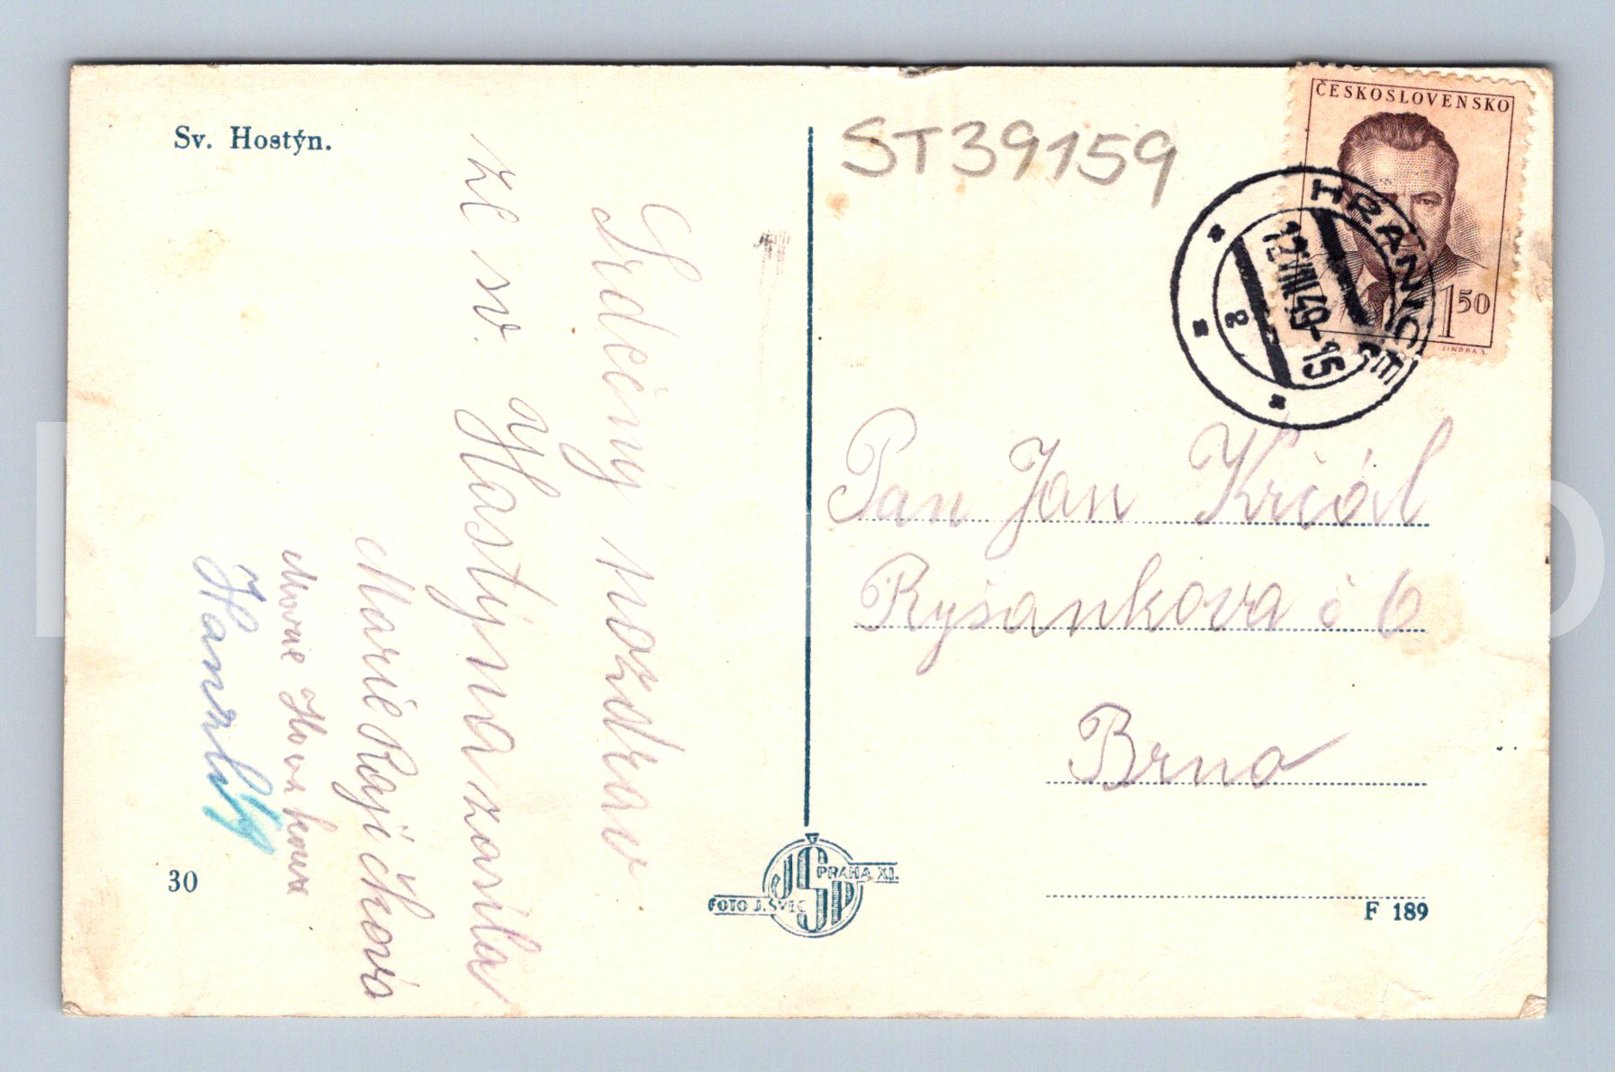 Sv. Hostýn.
ST39159
ČESKOSLOVENSKO
1 50
JINDRA S.
HRANICE
12.VIII.49-15
Srdečný pozdrav
ze sv. Hostýna zasíla
Marie
Marie
Pan Jan
Ryšankova č 6
Brno
30
FOTO J. ŠVEC
PRAHA XI.
JŠP
F 189